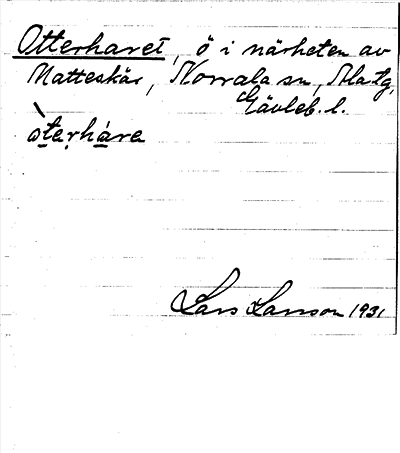 Otterharet, ö i närheten av
Matteskär, Norrala sn, Ala tg,
Gävleb. l.
òterhare
Lars Larsson 1931